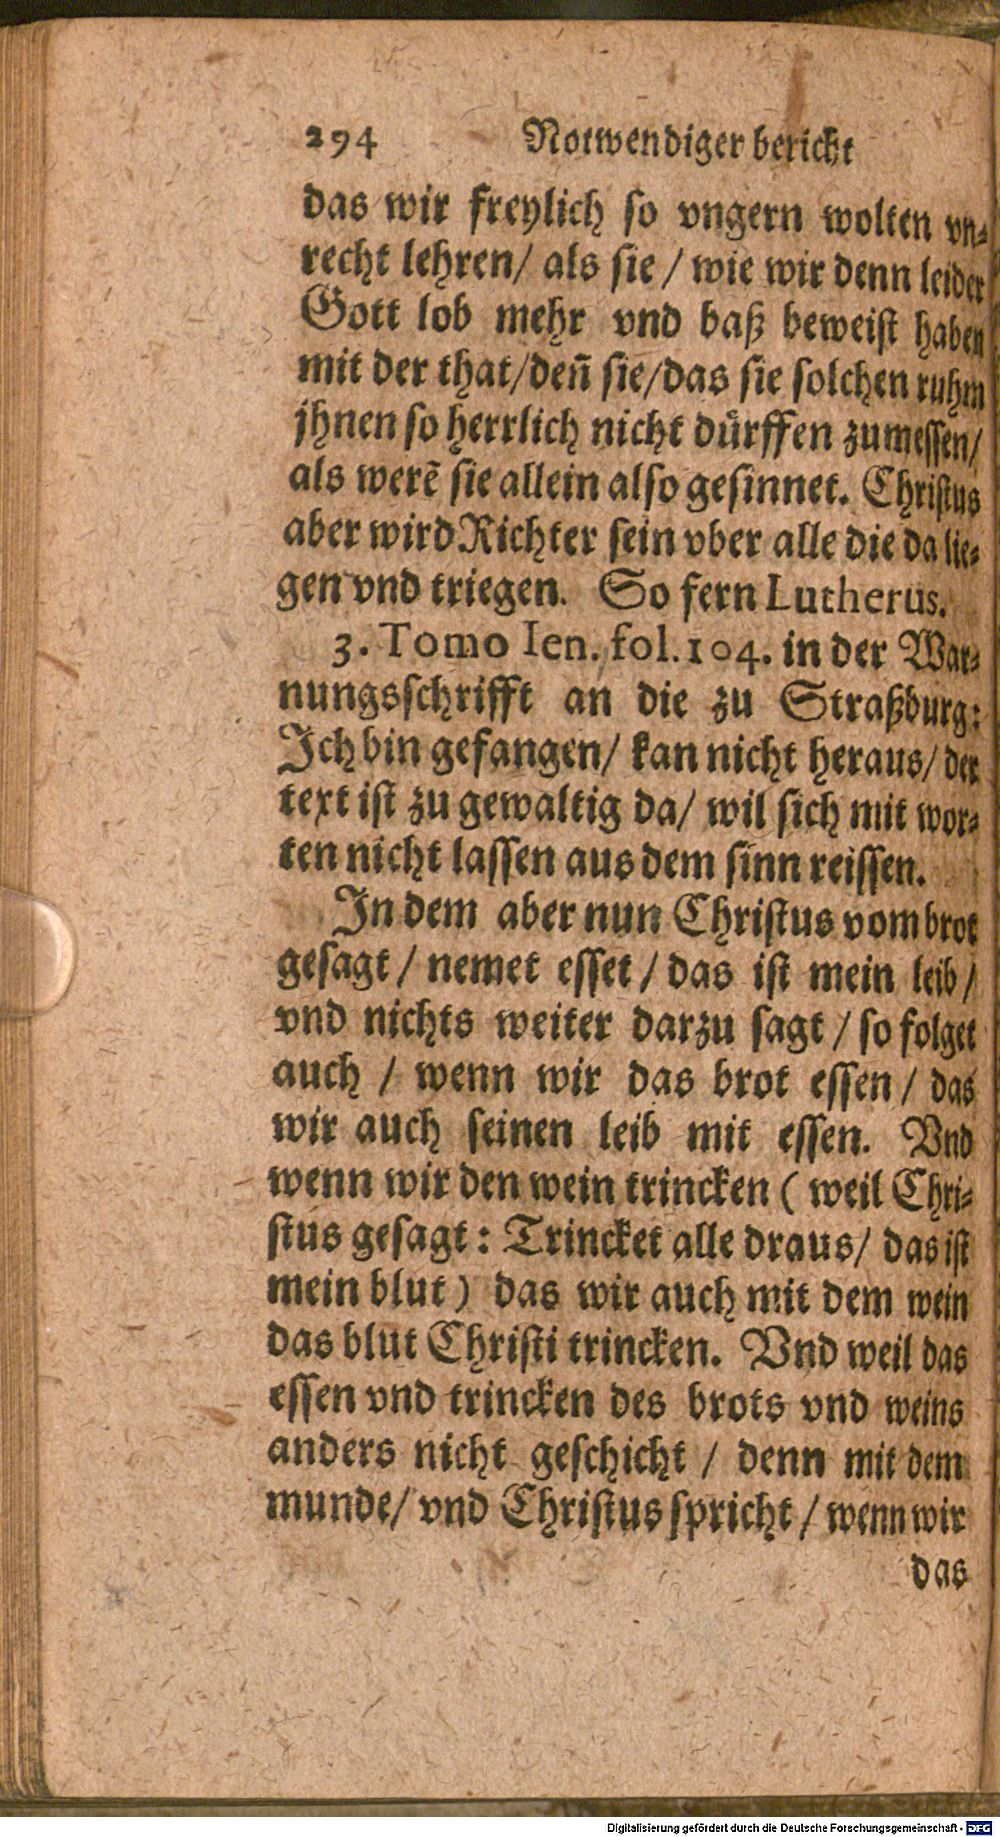 294 Notwendiger bericht
das wir freylich so vngern wolten vn⸗
recht lehren/ als sie / wie wir denn leider
Gott lob mehr vnd baß beweist haben
mit der that/deñ sie/das sie solchen ruhm
jhnen so herrlich nicht dürffen zumessen/
als werē sie allein also gesinnet. Christus
aber wird Richter sein vber alle die da lie⸗
gen vnd triegen. So fern Lutherus.
3. Tomo Ien. fol. 104. in der War⸗
nungsschrifft an die zu Straßburg:
Ich bin gefangen/ kan nicht heraus/ der
text ist zu gewaltig da/ wil sich mit wor⸗
ten nicht lassen aus dem sinn reissen.
In dem aber nun Christus vom brot
gesagt / nemet esset / das ist mein leib /
vnd nichts weiter darzu sagt / so folget
auch / wenn wir das brot essen / das
wir auch seinen leib mit essen. Vnd
wenn wir den wein trincken ( weil Chri⸗
stus gesagt : Trincket alle draus/ das ist
mein blut ) das wir auch mit dem wein
das blut Christi trincken. Vnd weil das
essen vnd trincken des brots vnd weins
anders nicht geschicht / denn mit dem
munde/ vnd Christus spricht / wenn wir
das
Digitalisierung gefördert durch die Deutsche Forschungsgemeinschaft - DFG